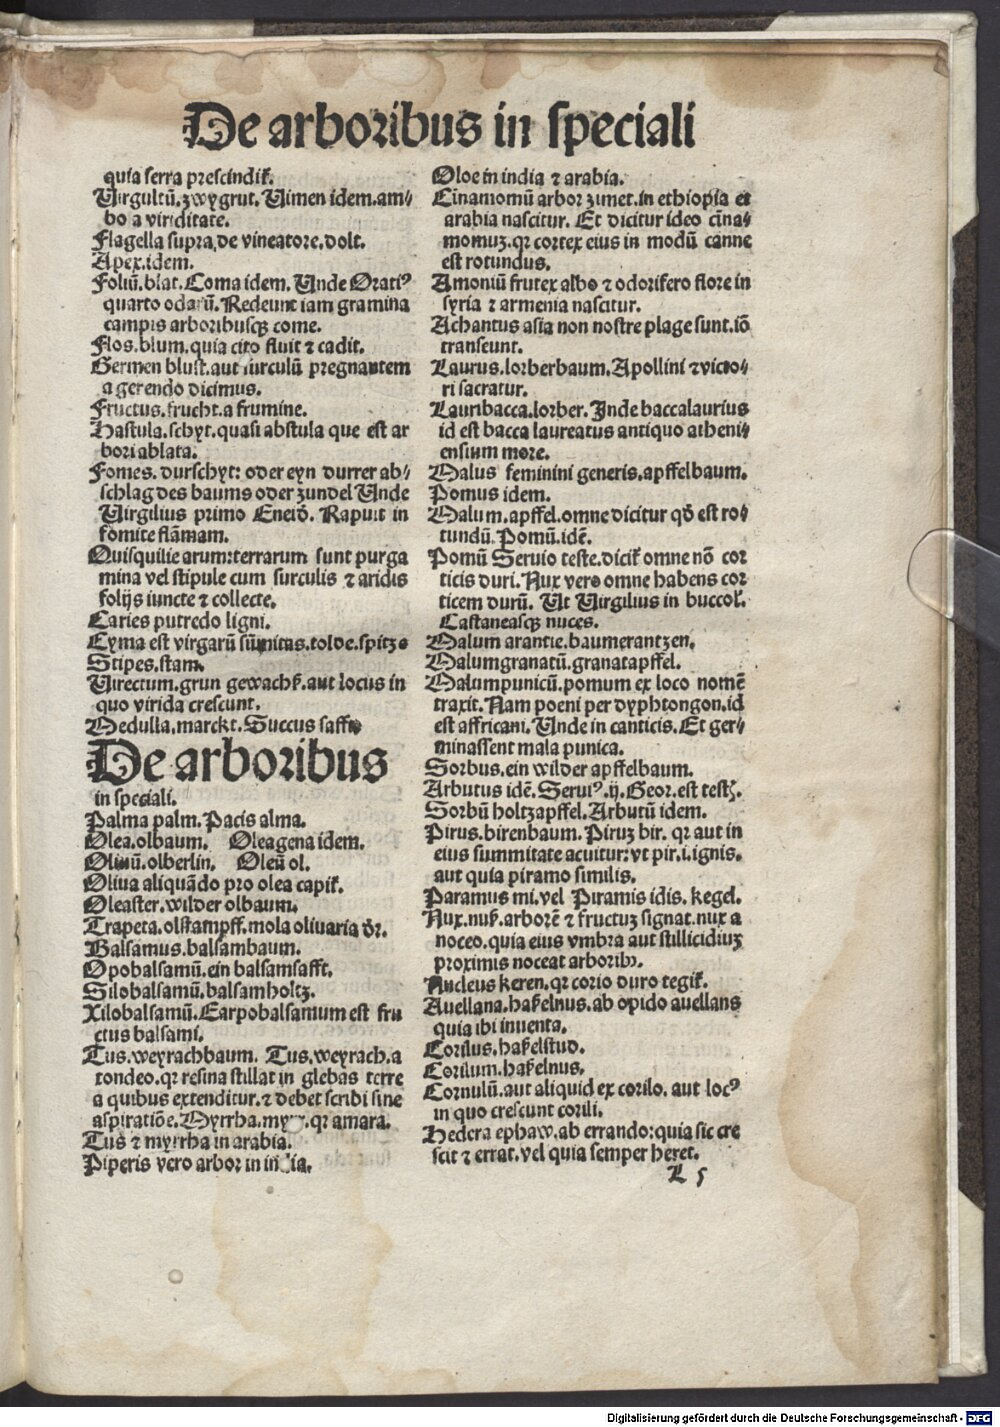 De arboribus in speciali
quia serra prescindit̃.
Uirgultũ.zwygrut. Uimen idem.am⸗
bo a viriditate.
Flagella supra,de vineatore.dolt.
Apex.idem.
Foliũ.blat.Coma idem. Unde Oratiꝰ
quarto odarũ. Redeunt iam gramina
campis arboribusqꝫ come.
Flos.blum.quia cito fluit ⁊ cadit.
Germen blust.aut surculũ pregnantem
a gerendo dicimus.
Fructus.frucht.a frumine.
Hastula.schyt.quasi abstula que est ar
bori ablata.
Fomes. durschyt: oder eyn durrer ab⸗
schlag des baums oder zundel Unde
Uirgilius primo Eneiđ. Rapuit in
fomite flãmam.
Quisquilie arum:terrarum sunt purga
mina vel stipule cum surculis ⁊ aridis
folijs iuncte ⁊ collecte.
Caries putredo ligni.
Cyma est virgarũ sũmitas.tolde.spitze
Stipes.stam
Uirectum.grun gewachß.aut locus in
quo virida crescunt.
Medulla.marckt.Succus safft
De arboribus
in speciali.
Palma palm. Pacis alma.
Olea.olbaum. Oleagena idem.
Oliuũ.olberlin. Oleũ ol.
Oliua aliquãdo pro olea capit̃.
Oleaster.wilder olbaum.
Trapeta.olstampff.mola oliuaria đr.
Balsamus.balsambaum.
Opobalsamũ.ein balsamsafft.
Silobalsamũ.balsamholtz.
Xilobalsamũ.Carpobalsamum est fru
ctus balsami.
Tus.weyrachbaum. Tus.weyrach.a
tondeo.qr resina stillat in glebas terre
a quibus extenditur.⁊ debet scribi sine
aspiratiõe.Myrrha.myrr.qr amara.
Tus ⁊ myrrha in arabia.
Piperis vero arbor in india.
Oloe in india ⁊ arabia.
Cĩnamomũ arbor zimet.in ethiopia et
arabia nascitur. Et dicitur ideo cĩna⸗
momuꝫ.qr cortex eius in modũ canne
est rotundus.
Amoniũ frutex albo ⁊ odorifero flore in
syria ⁊ armenia nascitur.
Achantus asia non nostre plage sunt.iõ
transeunt.
Laurus.lorberbaum.Apollini ⁊ victo⸗
ri sacratur.
Lauribacca.lorber. Inde baccalaurius
id est bacca laureatus antiquo atheni⸗
ensium more.
Malus feminini generis.apffelbaum.
Pomus idem.
Malum.apffel.omne dicitur qđ est ro⸗
tundũ. Pomũ.idẽ.
Pomũ Seruio teste.dicit̃ omne nõ cor
ticis duri. Nux vero omne habens cor
ticem durũ. Ut Uirgilius in buccol̃.
Castaneasqꝫ nuces.
Malum arantie.baumerantzen.
Malumgranatũ.granatapffel.
Malumpunicũ.pomum ex loco nomẽ
traxit. Nam poeni per dyphtongon.id
est affricani. Unde in canticis. Et ger⸗
minassent mala punica.
Sorbus.ein wilder apffelbaum.
Arbutus idẽ. Seruiꝰ.ij.Geor.est testis.
Sorbũ holtzapffel.Arbutũ idem.
Pirus.birenbaum. Piruꝫ bir. qr aut in
eius summitate acuitur: vt pir.i.ignis.
aut quia piramo similis.
Paramus mi.vel Piramis idis. kegel.
Nux.nuß.arborẽ ⁊ fructuꝫ signat.nux a
noceo.quia eius vmbra aut stillicidiuꝫ
proximis noceat arborib⁹.
Nucleus keren.qr corio duro tegit̃.
Auellana.haßelnus.ab opido auellans
quia ibi inuenta.
Corilus.haßelstud.
Corilum.haßelnus.
Cornulũ.aut aliquid ex corilo. aut locꝰ
in quo crescunt corili.
Hedera ephaw.ab errando: quia sic cre
scit ⁊ errat.vel quia semper heret.
L 5
Digitalisierung gefördert durch die Deutsche Forschungsgemeinschaft - DFG